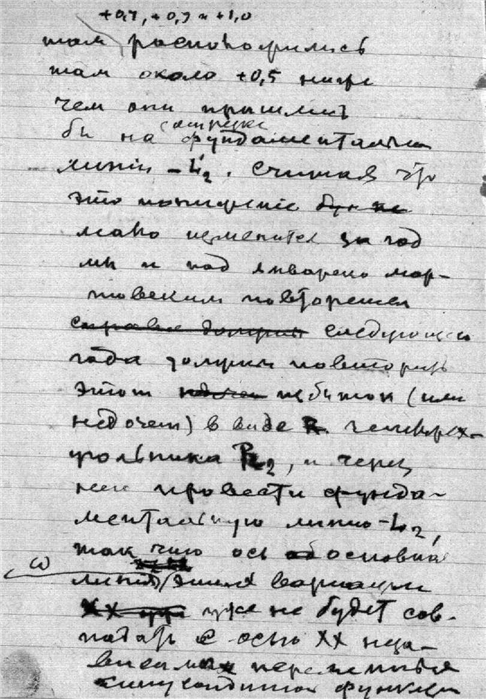 +0,7, +0,9 и +1,0
там расположились
там около +0,5 ниже
чем они пришлись
бы на фундаментальн
линии -L₂. Считая что
это понижение
мало изменится за год
мы и над январско мар-
товским повторением
следующего
года должны повторить
этот избыток (или
недочет) в виде четырех-
угольника R₂, и через
нее провести фунда-
ментальную линию -L₂,
так что ось основной
ω
линии вариации
уже не будет сов-
падать с осью XX неза-
висимых переменных
синусоидной функции